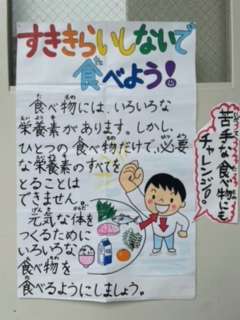 すききらいしないで
食べよう!
食べ物には、いろいろな
栄養素があります。しかし、
ひとつの食べ物だけで、必要
な栄養素のすべてを
とることは
できません。
元気な体を
つくるために
いろいろな
食べ物を
食べるようにしましょう。
苦手な食べ物も
チャレンジ!